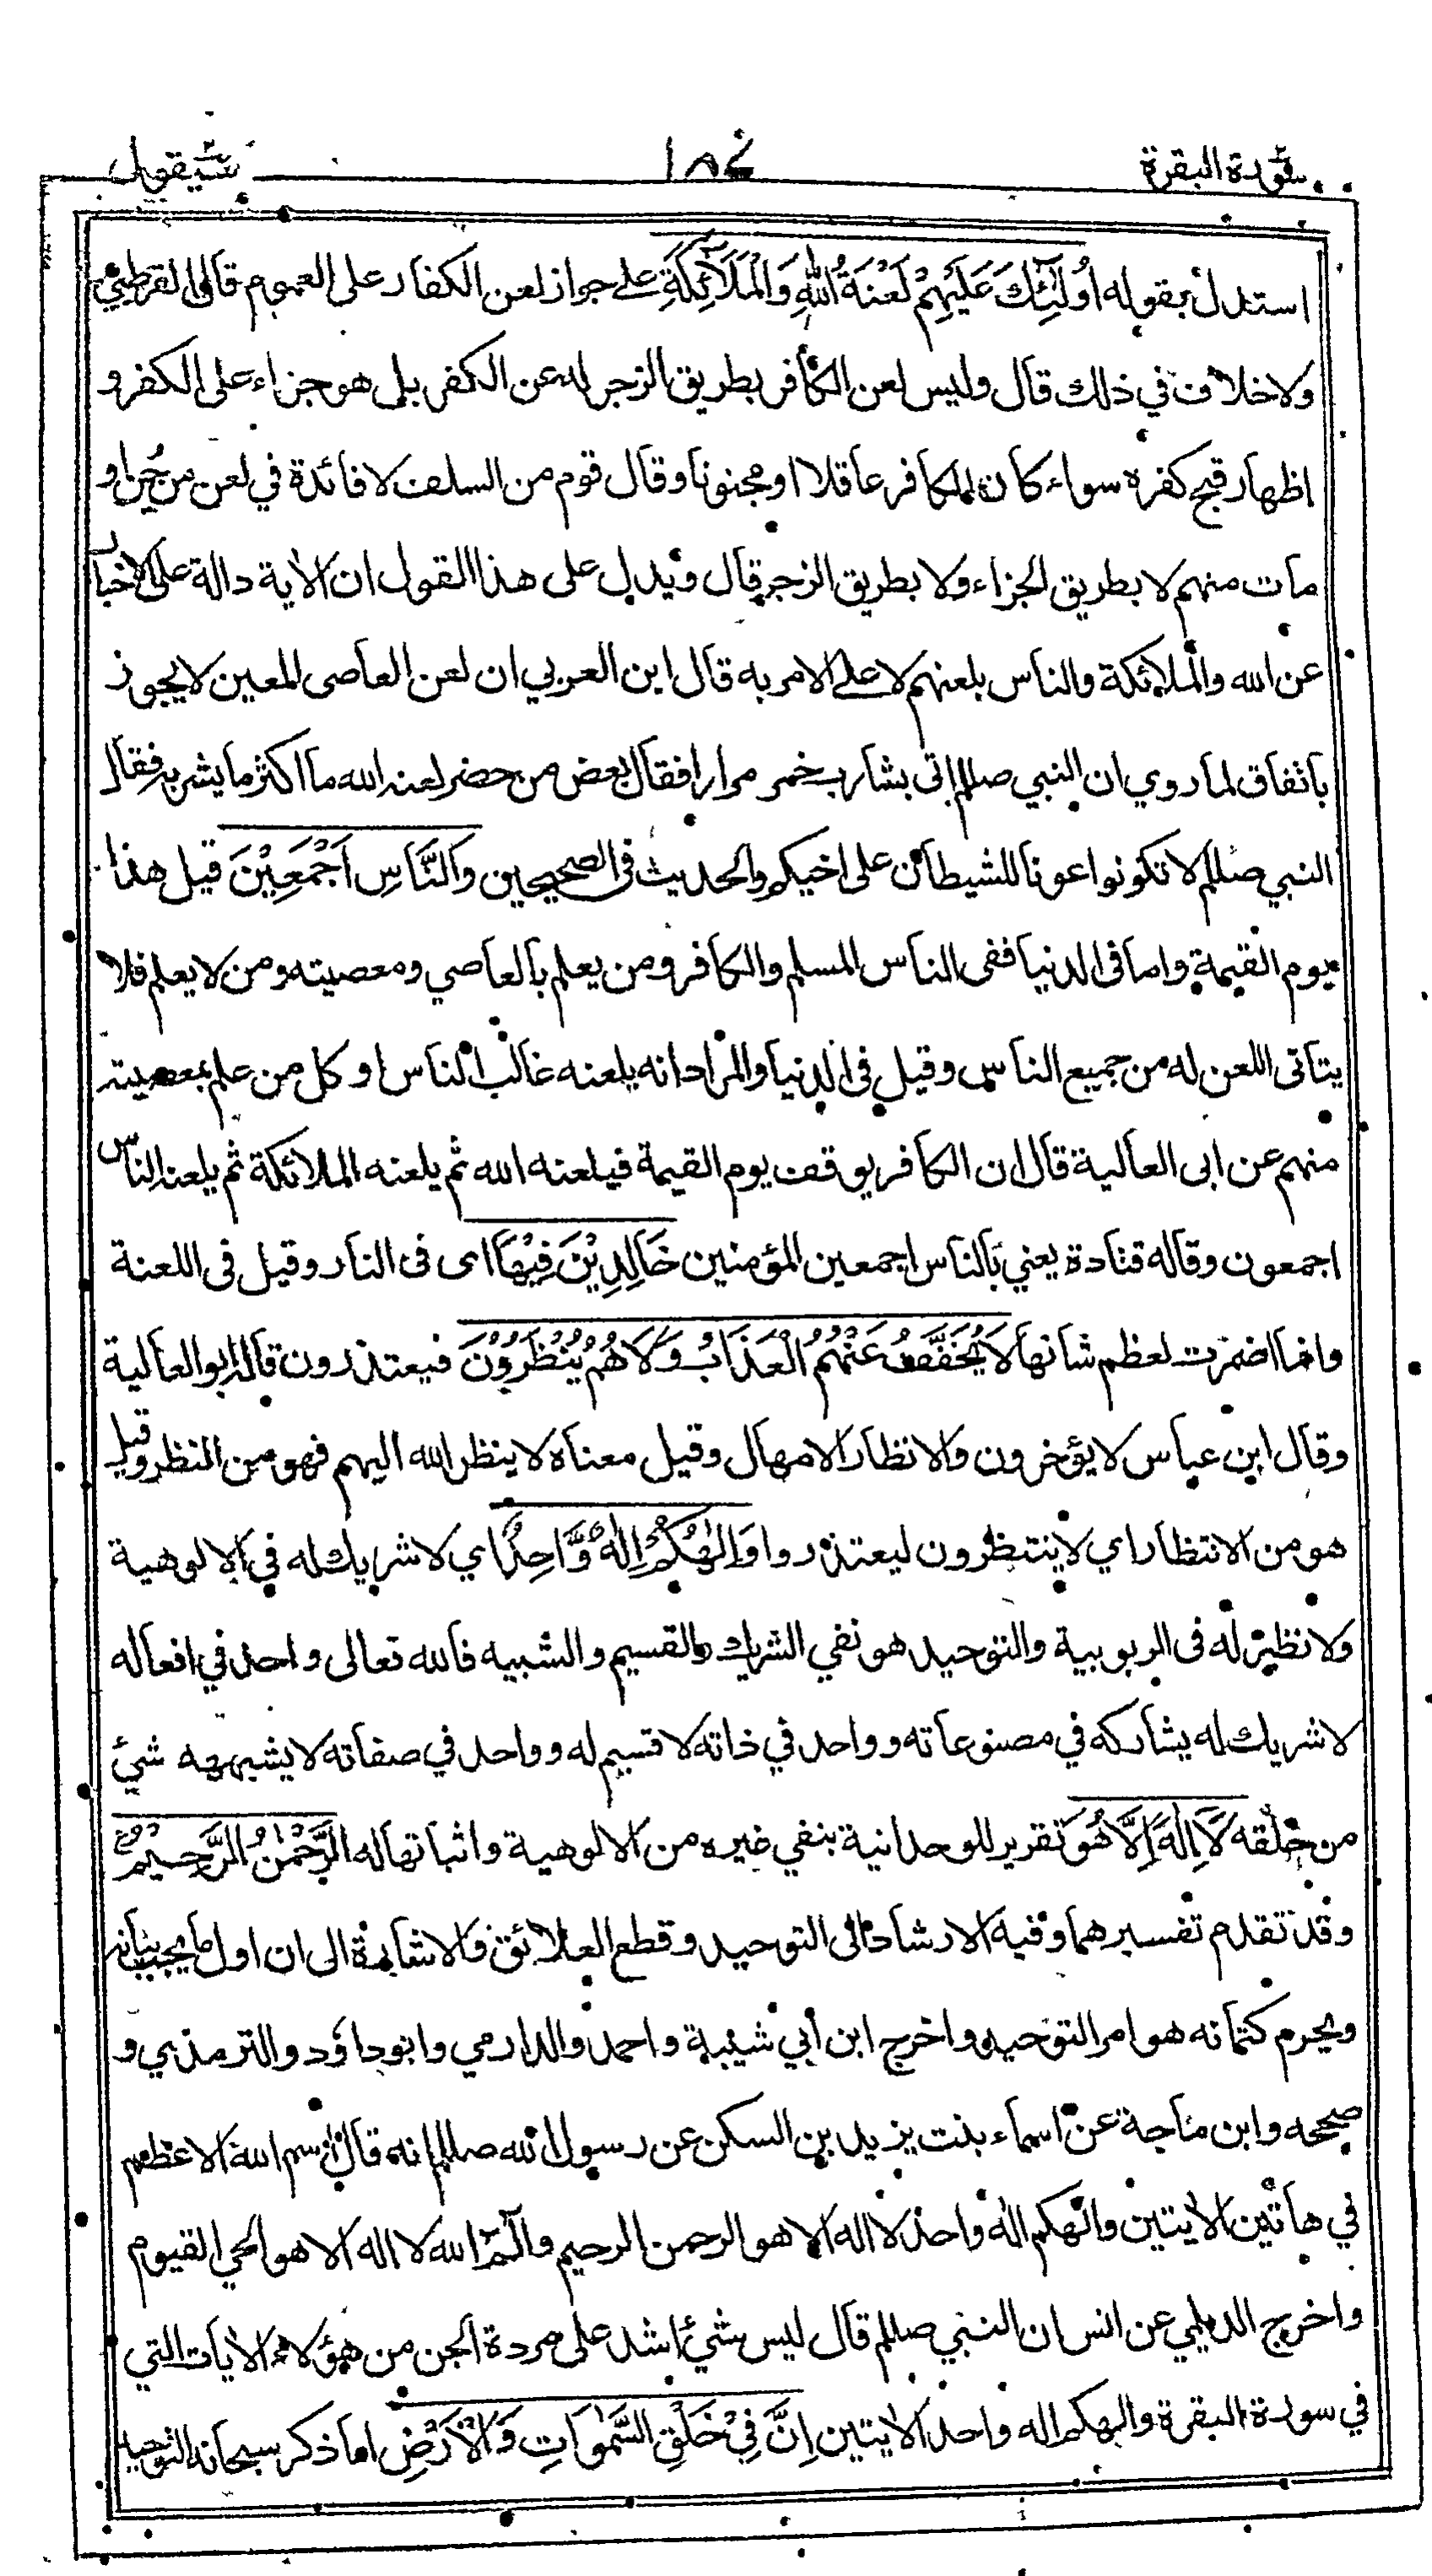 سورة البقرة
١٨٤
سيقول
استدل بقوله اُولٰٓئِكَ عَلَيْهِمْ لَعْنَةُ اللّٰهِ وَالْمَلَآئِكَةِ على جواز لعن الكفار على العموم قال القرطبي
ولا خلاف في ذلك قال وليس لعن الكافر بطريق الزجر له عن الكفر بل هو جزاء على الكفر و
اظهار قبح كفره سواء كان الكافر عاقلا او مجنونا وقال قوم من السلف لا فائدة في لعن من جُن او
مات منهم لا بطريق الجزاء ولا بطريق الزجر قال ويدل على هذا القول ان الاٰية دالة على الاخبار
عن الله والملائكة والناس بلعنهم لا على الامر به قال ابن العربي ان لعن العاصى المعين لا يجوز
باتفاق لما روي ان النبي صللم اتى بشارب خمر مرارا فقال بعض من حضر لعنه الله ما اكثر ما يشربه فقال
النبي صللم لا تكونوا عونا للشيطان على اخيكم والحديث فى الصحيحين وَالنَّاسِ اَجْمَعِيْنَ قيل هذا
يوم القيمة واما فى الدنيا ففى الناس المسلم والكافر ومن يعلم بالعاصي ومعصيته ومن لا يعلم فلا
يتاتى اللعن له من جميع الناس وقيل فى الدنيا والمراد انه يلعنه غالب الناس او كل من علم بمعصيته
منهم عن ابى العالية قال ان الكافر يوقف يوم القيمة فيلعنه الله ثم يلعنه الملائكة ثم يلعنه الناس
اجمعون وقاله قتادة يعني بالناس اجمعين المؤمنين خَالِدِيْنَ فِيْهَا اى فى النار وقيل فى اللعنة
وانما اضمرت لعظم شانها لَا يُخَفَّفُ عَنْهُمُ الْعَذَابُ وَلَا هُمْ يُنْظَرُوْنَ فيعتذرون قاله ابو العالية
وقال ابن عباس لا يؤخرون والانظار الامهال وقيل معناه لا ينظر الله اليهم فهو من النظر وقيل
هو من الانتظار اي لا ينتظرون ليعتذروا وَاِلٰهُكُمْ اِلٰهٌ وَّاحِدٌ اي لا شريك له في الالوهية
ولا نظير له فى الربوبية والتوحيد هو نفي الشريك والقسيم والشبيه فالله تعالى واحد في افعاله
لا شريك له يشاركه في مصنوعاته وواحد في ذاته لا قسيم له وواحد في صفاته لا يشبهه شيئ
من خلقه لَا اِلٰهَ اِلَّا هُوَ تقرير للوحدانية بنفي غيره من الالوهية واثباتها له الرَّحْمٰنُ الرَّحِيْمُ
وقد تقدم تفسيرهما وفيه الارشاد الى التوحيد وقطع العلائق والاشارة الى ان اول ما يجب بيانه
ويحرم كتمانه هو امر التوحيد واخرج ابن أبي شيبة واحمد والدارمي وابو داؤد والترمذي و
صححه وابن ماجة عن اسماء بنت يزيد بن السكن عن رسول الله صللم انه قال ان اسم الله الاعظم
في هاتين الاٰيتين والٰهكم اله واحد لا اله الا هو الرحمن الرحيم والٓمّ الله لا اله الا هو الحي القيوم
واخرج الديلمي عن انس ان النبي صللم قال ليس شيئ اشد على مردة الجن من هؤلاء الاٰيات التي
في سورة البقرة والهكم اله واحد الاٰيتين اِنَّ فِيْ خَلْقِ السَّمٰوَاتِ وَالْاَرْضِ لما ذكر سبحانه التوحيد